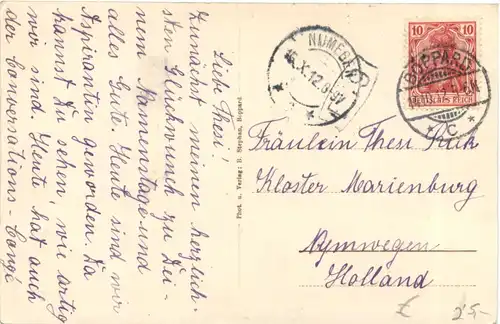 Liebe Thesi!
Zunächst meinen herzlich-
sten Glückwunsch zu Dei-
nem Namenstage und
alles Gute. Heute sind wir
Aspirantin geworden. Da
kannst Du sehen, wie artig
wir sind. Heute hat auch
der Conversations-Congé
Phot. u. Verlag: B. Stephan, Boppard
NIJMEGEN
10 10
DEUTSCHES REICH
BOPPARD
* C *
Fräulein Thesi
Kloster Marienburg
Nymwegen
Holland
25,-